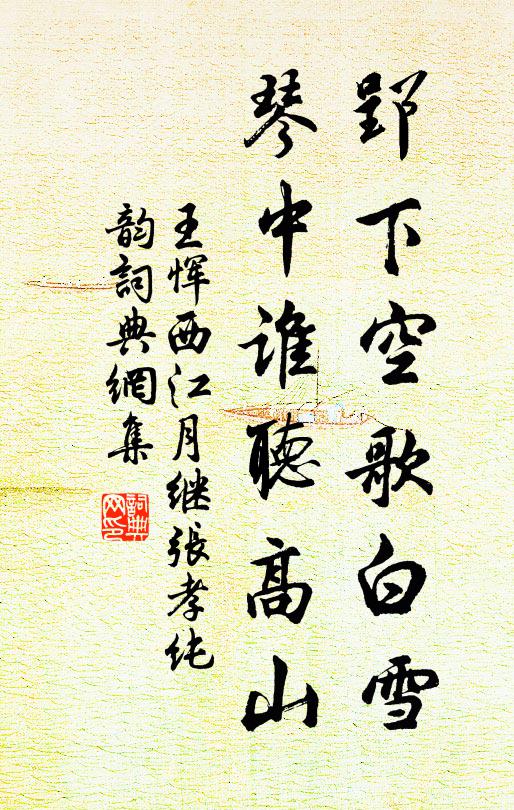 郢下空歌白雪
琴中谁聽高山
王恽西江月继張孝纯
韵詞典網集
詞典网印